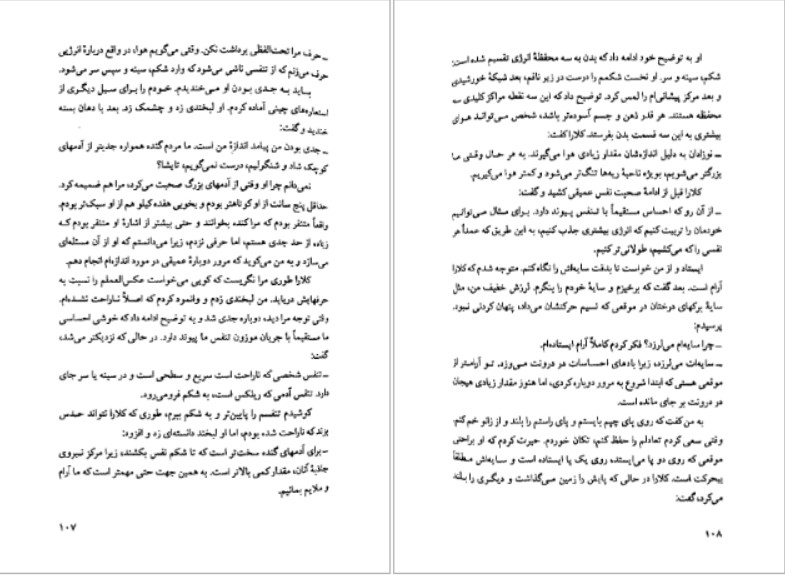 ـ حرف مرا تحت‌اللفظی برداشت نکن. وقتی می‌گویم هوا، در واقع دربارهٔ انرژیی
حرف می‌زنم که از تنفسی ناشی می‌شود که وارد شکم، سینه و سپس سر می‌شود.
باید به جدی بودن او می‌خندیدم. خودم را برای سیل دیگری از
استعاره‌های چینی آماده کردم. او لبخندی زد و چشمک زد. بعد با دهان بسته
خندید و گفت:
ـ جدی بودن من پیامد اندازهٔ من است. ما مردم گنده همواره جدیتر از آدمهای
کوچک شاد و شنگولیم، درست نمی‌گویم، تایشا؟
نمی‌دانم چرا او وقتی از آدمهای بزرگ صحبت می‌کرد، مرا هم ضمیمه کرد.
حداقل پنج سانت از او کوتاهتر بودم و بخوبی هفده کیلو هم از او سبک‌تر بودم.
واقعاً متنفر بودم که مرا گنده بخوانند و حتی بیشتر از اشارهٔ او متنفر بودم کـه
زیاده از حد جدی هستم، اما حرفی نزدم، زیرا می‌دانستم که او از آن مسئله‌ای
می‌سازد و به من می‌گوید که مرور دوبارهٔ عمیقی در مورد اندازه‌ام انجام دهم.
کلارا طوری مرا نگریست که گویی می‌خواست عکس‌العملم را نسبت به
حرفهایش دریابد. من لبخندی زدم و وانمود کردم که اصلاً ناراحت نشده‌ام.
وقتی توجه مرا دید، دوباره جدی شد و به توضیح ادامه داد که خوشی احساسی
ما مستقیماً با جریان موزون تنفس ما پیوند دارد. در حالی که نزدیکتر می‌شد،
گفت:
ـ تنفس شخصی که ناراحت است سریع و سطحی است و در سینه یا سر جای
دارد. تنفس آدمی که ریلکس است، به شکم فرومی‌رود.
کوشیدم تنفسم را پایین‌تر و به شکم ببرم، طوری که کلارا نتواند حدس
بزند که ناراحت شده بودم، اما او لبخند دانسته‌ای زد و افزود:
ـ برای آدمهای گنده سخت‌تر است که تا شکم نفس بکشند، زیرا مرکز نیروی
جاذبهٔ آنان، مقدار کمی بالاتر است. به همین جهت حتی مهمتر است که ما آرام
و ملایم بمانیم.
۱۰۷
او به توضیح خود ادامه داد که بدن به سه محفظهٔ انرژی تقسیم شده است:
شکم، سینه و سر. او نخست شکمم را درست در زیر نافم، بعد شبکهٔ خورشیدی
و بعد مرکز پیشانی‌ام را لمس کرد. توضیح داد که این سه نقطه مراکز کلیدی سه
محفظه هستند. هر قدر ذهن و جسم آسوده‌تر باشد، شخص می‌تواند هوای
بیشتری به این سه قسمت بدن بفرستد. کلارا گفت:
ـ نوزادان به دلیل اندازه‌شان مقدار زیادی هوا می‌گیرند. به هر حال وقتی ما
بزرگتر می‌شویم، بویژه ناحیهٔ ریه‌ها تنگ‌تر می‌شود و کمتر هوا می‌گیریم.
کلارا قبل از ادامهٔ صحبت نفس عمیقی کشید و گفت:
ـ از آن رو که احساس مستقیماً با تنفس پیوند دارد. برای مثال می‌توانیم
خودمان را تربیت کنیم که انرژی بیشتری جذب کنیم، به این طریق که عمداً هر
نفسی را که می‌کشیم، طولانی‌تر کنیم.
ایستاد و از من خواست تا بدقت سایه‌اش را نگاه کنم. متوجه شدم که کلارا
آرام است. بعد گفت که برخیزم و سایهٔ خودم را بنگرم. لرزش خفیف من، مثل
سایهٔ برگهای درختان در موقعی که نسیم حرکتشان می‌داد، پنهان کردنی نبود.
پرسیدم:
ـ چرا سایه‌ام می‌لرزد؟ فکر کردم کاملاً آرام ایستاده‌ام.
ـ سایه‌ات می‌لرزد، زیرا بادهای احساسات در درونت می‌وزد. تو آرامتر از
موقعی هستی که ابتدا شروع به مرور دوباره کردی، اما هنوز مقدار زیادی هیجان
در درونت بر جای مانده است.
به من گفت که روی پای چپم بایستم و پای راستم را بلند و از زانو خم کنم.
وقتی سعی کردم تعادلم را حفظ کنم، تکان خوردم. حیرت کردم که او براحتی
موقعی که روی دو پا می‌ایستد، روی یک پا ایستاده است و سایه‌اش مطلقاً
بیحرکت است. کلارا در حالی که پایش را زمین می‌گذاشت و دیگری را بلند
می‌کرد، گفت:
۱۰۸